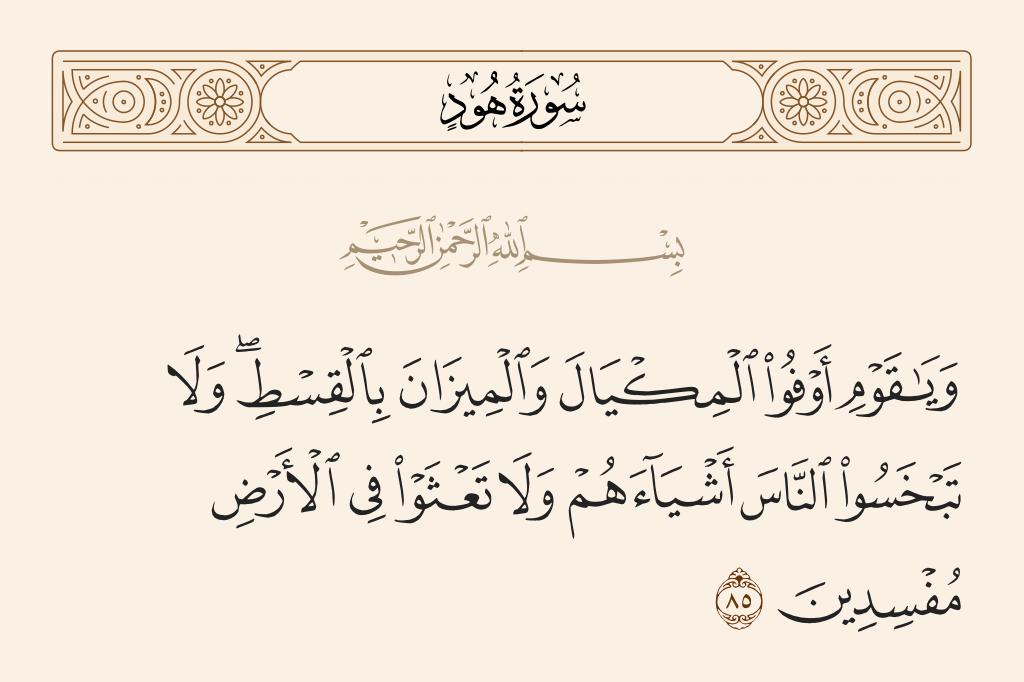 سُورَةُ هُودٍ
بِسْمِ ٱللَّهِ ٱلرَّحْمَٰنِ ٱلرَّحِيمِ
وَيَـٰقَوْمِ أَوْفُوا۟ ٱلْمِكْيَالَ وَٱلْمِيزَانَ بِٱلْقِسْطِ ۖ وَلَا
تَبْخَسُوا۟ ٱلنَّاسَ أَشْيَآءَهُمْ وَلَا تَعْثَوْا۟ فِى ٱلْأَرْضِ
مُفْسِدِينَ ٨٥